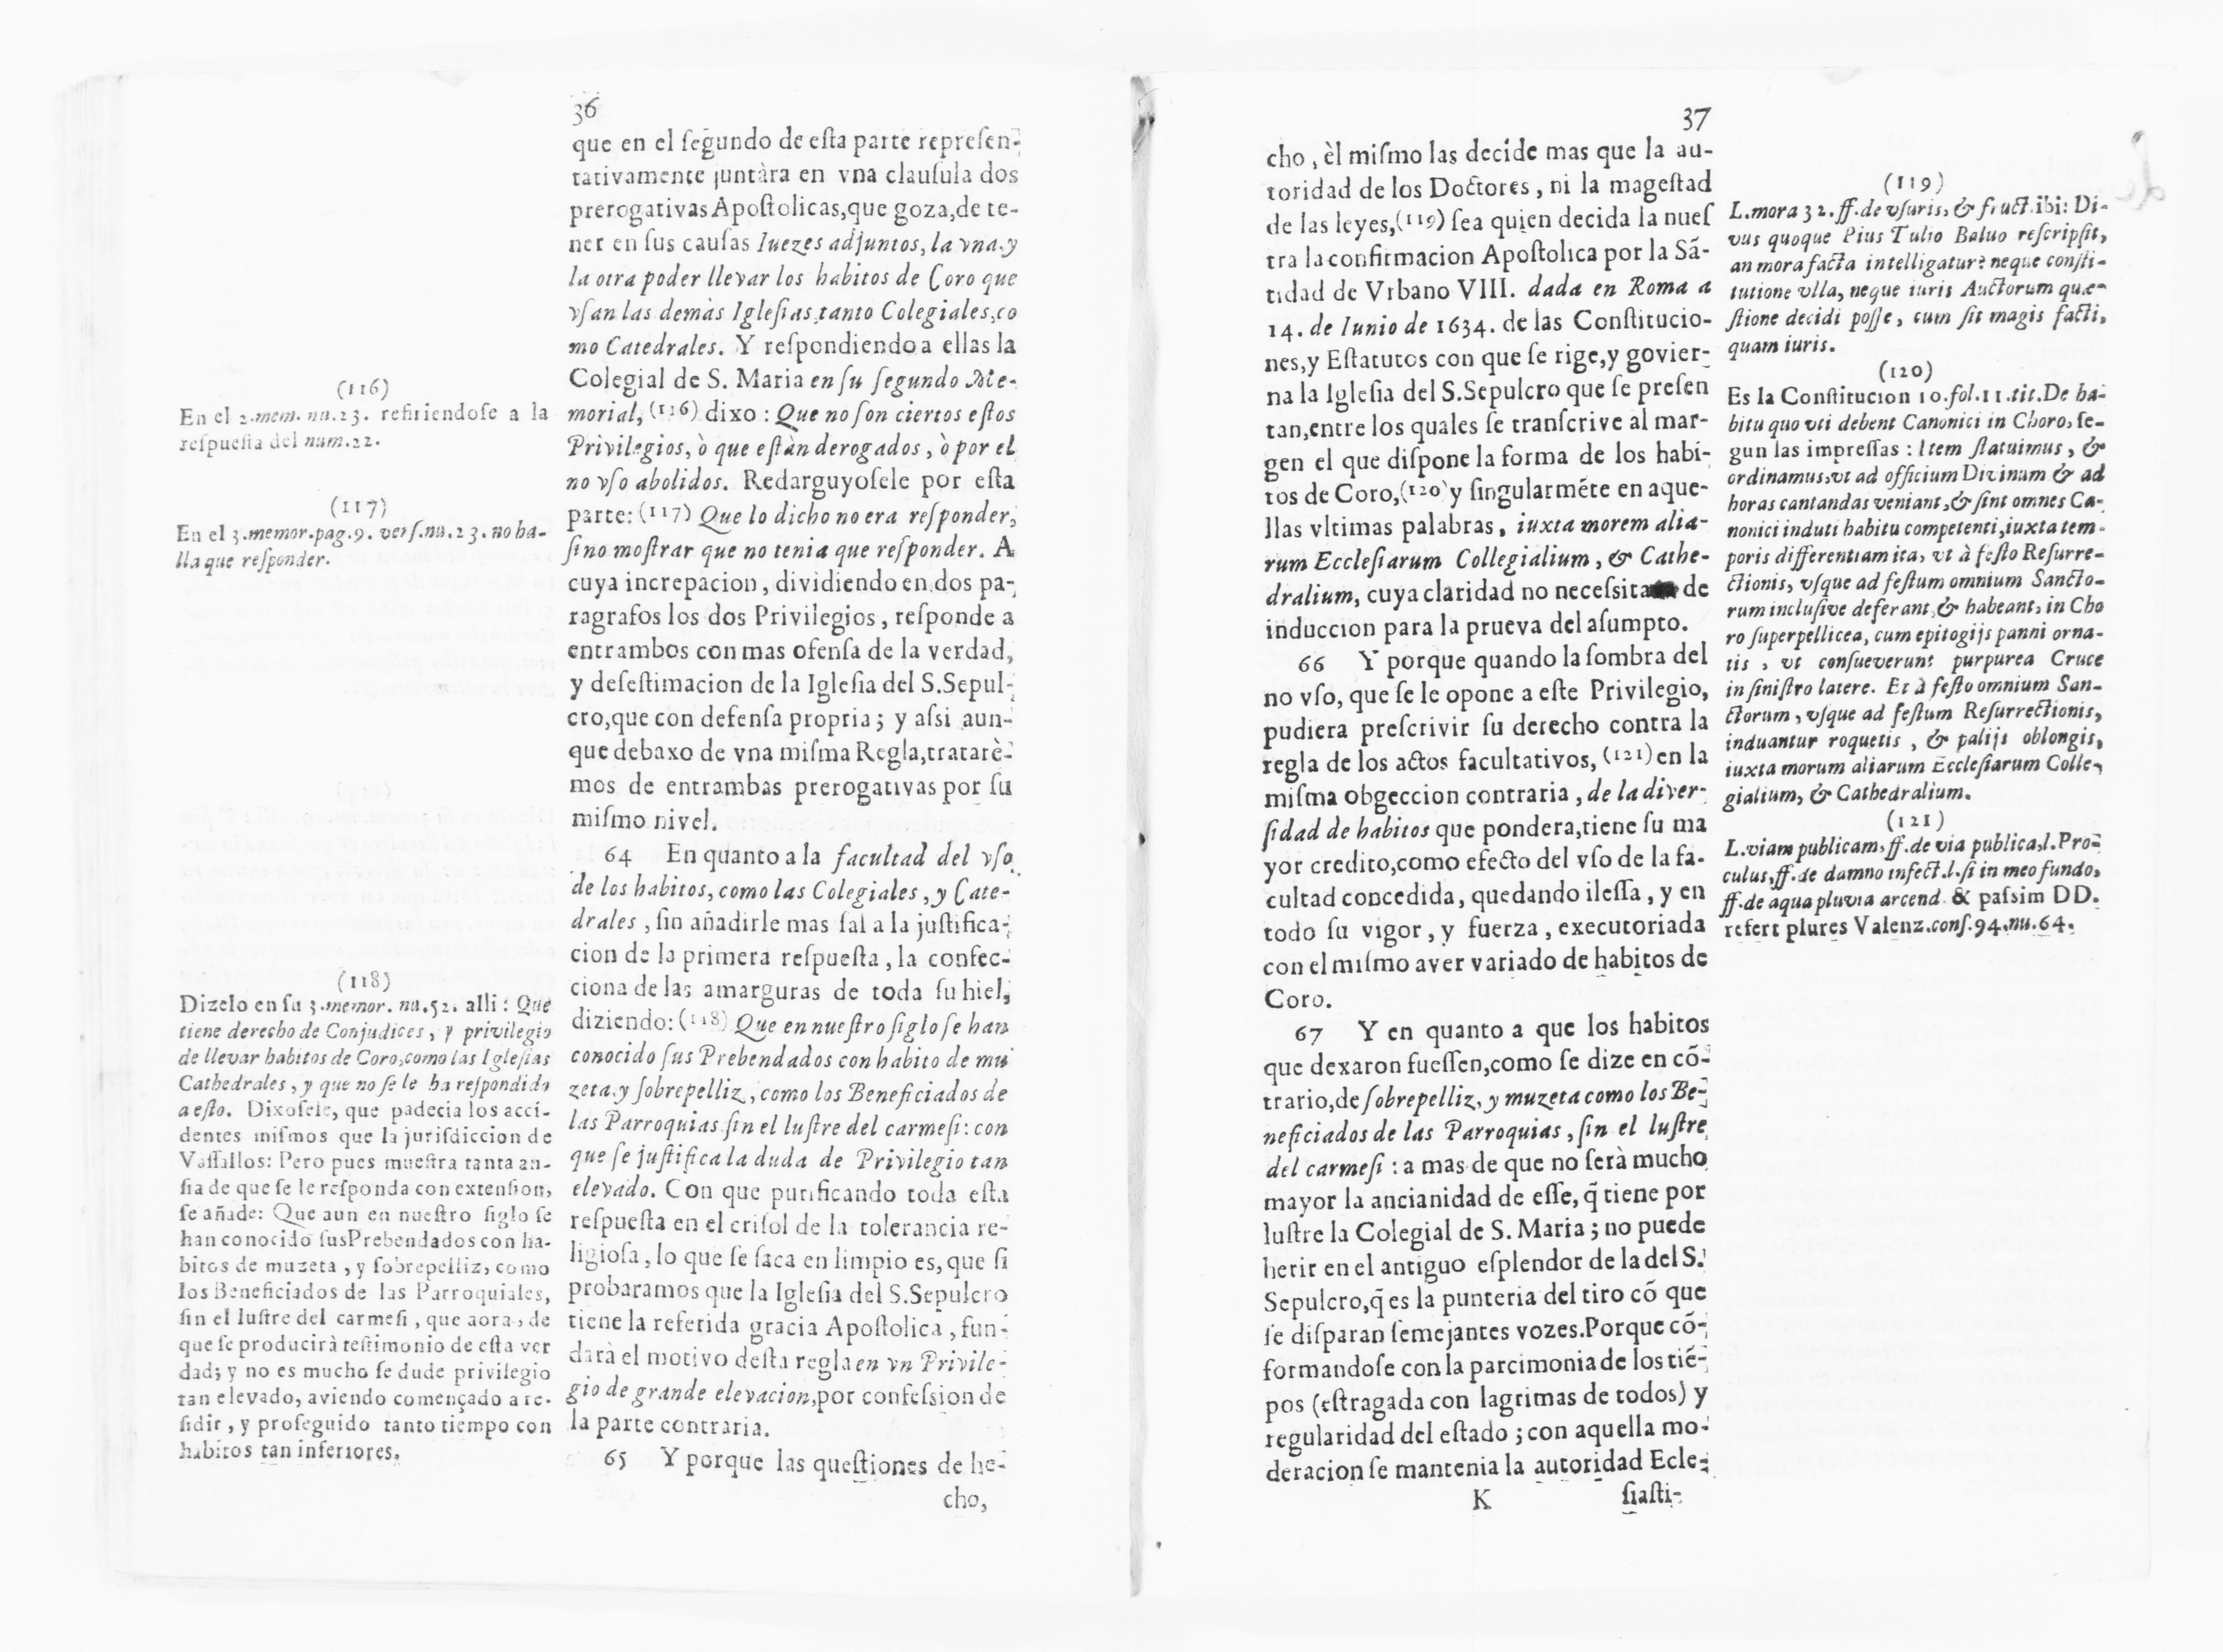 36
que en el ſegundo de eſta parte repreſen-
tativamente juntàra en vna clauſula dos
prerogativas Apoſtolicas,que goza,de te-
ner en ſus cauſas Iuezes adjuntos, la vna,y
la otra poder llevar los habitos de Coro que
vſan las demàs Igleſias,tanto Colegiales,co
mo Catedrales. Y reſpondiendo a ellas la
Colegial de S. Maria en ſu ſegundo Me-
morial, (116) dixo : Que no ſon ciertos eſtos
Privilegios, ò que eſtàn derogados , ò por el
no vſo abolidos. Redarguyoſele por eſta
parte: (117) Que lo dicho no era reſponder,
ſino moſtrar que no tenia que reſponder. A
cuya increpacion , dividiendo en dos pa-
ragrafos los dos Privilegios , reſponde a
entrambos con mas ofenſa de la verdad,
y deſeſtimacion de la Igleſia del S.Sepul-
cro,que con defenſa propria ; y aſsi aun-
que debaxo de vna miſma Regla,tratarè-
mos de entrambas prerogativas por ſu
miſmo nivel.
64 En quanto a la facultad del vſo
de los habitos, como las Colegiales , y Cate-
drales , ſin añadirle mas ſal a la juſtifica-
cion de la primera reſpueſta , la confec-
ciona de las amarguras de toda ſu hiel,
diziendo: (118) Que en nueſtro ſiglo ſe han
conocido ſus Prebendados con habito de mu
zeta,y ſobrepelliz , como los Beneficiados de
las Parroquias ſin el luſtre del carmeſi: con
que ſe juſtifica la duda de Privilegio tan
elevado. Con que purificando toda eſta
reſpueſta en el criſol de la tolerancia re-
ligioſa , lo que ſe ſaca en limpio es, que ſi
probaramos que la Igleſia del S.Sepulcro
tiene la referida gracia Apoſtolica , fun-
darà el motivo deſta regla en vn Privile-
gio de grande elevacion,por confeſsion de
la parte contraria.
65 Y porque las queſtiones de he-
cho,
(116)
En el 2.mem. nu.23. refiriendoſe a la
reſpueſta del num.22.
(117)
En el 3.memor.pag.9. verſ.nu.23. no ha-
lla que reſponder.
(118)
Dizelo en ſu 3.memor. nu.52. alli : Que
tiene derecho de Conjudices , y privilegio
de llevar habitos de Coro,como las Igleſias
Cathedrales , y que no ſe le ha reſpondido
a eſto. Dixoſele, que padecia los acci-
dentes miſmos que la juriſdiccion de
Vaſſallos: Pero pues mueſtra tanta an-
ſia de que ſe le reſponda con extenſion,
ſe añade: Que aun en nueſtro ſiglo ſe
han conocido ſusPrebendados con ha-
bitos de muzeta , y ſobrepelliz, como
los Beneficiados de las Parroquiales,
ſin el luſtre del carmeſi , que aora , de
que ſe producirà teſtimonio de eſta ver
dad; y no es mucho ſe dude privilegio
tan elevado, aviendo començado a re-
ſidir , y proſeguido tanto tiempo con
habitos tan inferiores.
37
cho , èl miſmo las decide mas que la au-
toridad de los Doctores , ni la mageſtad
de las leyes,(119) ſea quien decida la nueſ
tra la confirmacion Apoſtolica por la Sã-
tidad de Vrbano VIII. dada en Roma a
14. de Iunio de 1634. de las Conſtitucio-
nes,y Eſtatutos con que ſe rige,y govier-
na la Igleſia del S.Sepulcro que ſe preſen
tan,entre los quales ſe tranſcrive al mar-
gen el que diſpone la forma de los habi-
tos de Coro,(120) y ſingularmẽte en aque-
llas vltimas palabras, iuxta morem alia-
rum Eccleſiarum Collegialium , & Cathe-
dralium, cuya claridad no neceſsita de
induccion para la prueva del aſumpto.
66 Y porque quando la ſombra del
no vſo, que ſe le opone a eſte Privilegio,
pudiera preſcrivir ſu derecho contra la
regla de los actos facultativos, (121) en la
miſma obgeccion contraria , de la diver-
ſidad de habitos que pondera,tiene ſu ma
yor credito,como efecto del vſo de la fa-
cultad concedida, quedando ileſſa , y en
todo ſu vigor , y fuerza , executoriada
con el miſmo aver variado de habitos de
Coro.
67 Y en quanto a que los habitos
que dexaron fueſſen,como ſe dize en cõ-
trario,de ſobrepelliz, y muzeta como los Be-
neficiados de las Parroquias , ſin el luſtre
del carmeſi : a mas de que no ſerà mucho
mayor la ancianidad de eſſe, q̃ tiene por
luſtre la Colegial de S. Maria ; no puede
herir en el antiguo eſplendor de la del S.
Sepulcro,q̃ es la punteria del tiro cõ que
ſe diſparan ſemejantes vozes.Porque cõ-
formandoſe con la parcimonia de los tiẽ-
pos (eſtragada con lagrimas de todos) y
regularidad del eſtado ; con aquella mo-
deracion ſe mantenia la autoridad Ecle-
K ſiaſti-
(119)
L.mora 32. ff.de vſuris, & fruct.ibi: Di-
vus quoque Pius Tulio Balvo reſcripſit,
an mora facta intelligatur? neque conſti-
tutione vlla, neque iuris Auctorum quæ-
ſtione decidi poſſe , cum ſit magis facti,
quam iuris.
(120)
Es la Conſtitucion 10.fol.11.tit.De ha-
bitu quo vti debent Canonici in Choro, ſe-
gun las impreſſas : Item ſtatuimus , &
ordinamus,vt ad officium Divinum & ad
horas cantandas veniant,& ſint omnes Ca-
nonici induti habitu competenti,iuxta tem-
poris differentiam ita, vt à feſto Reſurre-
ctionis, vſque ad feſtum omnium Sancto-
rum incluſive deferant,& habeant, in Cho
ro ſuperpellicea, cum epitogijs panni orna-
tis , vt conſueverunt purpurea Cruce
in ſiniſtro latere. Et à feſto omnium San-
ctorum , vſque ad feſtum Reſurrectionis,
induantur roquetis , & palijs oblongis,
iuxta morum aliarum Eccleſiarum Colle-
gialium, & Cathedralium.
(121)
L.viam publicam, ff.de via publica,l.Pro-
culus,ff.de damno infect.l.ſi in meo fundo,
ff.de aqua pluvia arcend. & paſsim DD.
refert plures Valenz.conſ.94.nu.64.